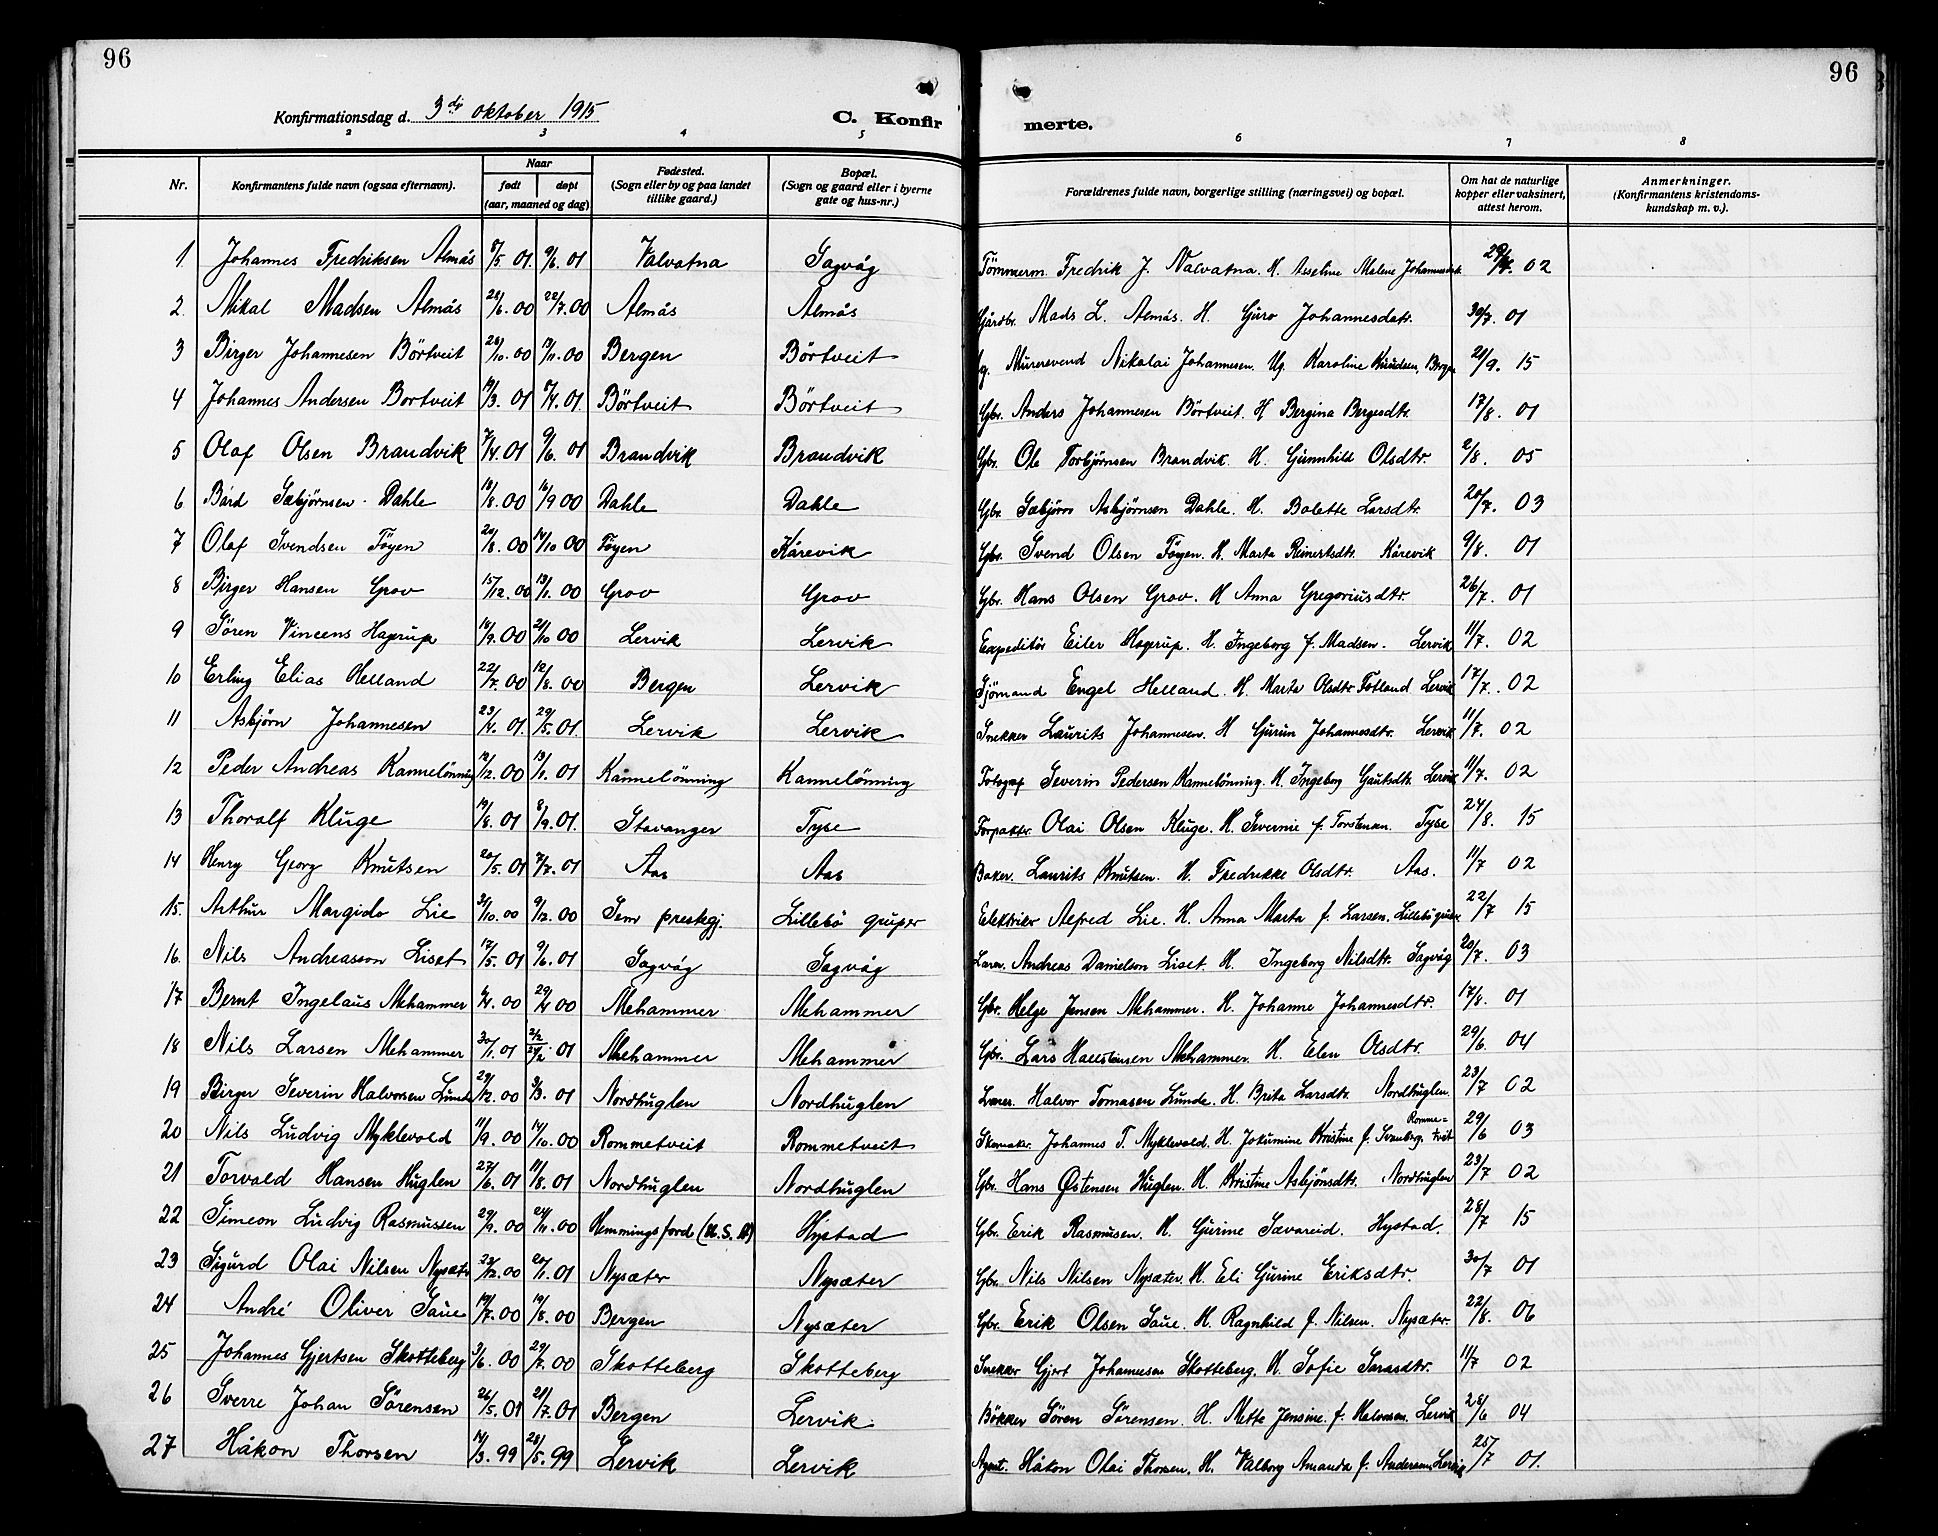 96
96
Konfirmationsdag d. 3dje oktober 1915
C. Konfir merte.
2 3 4 5 6 7 8
Nr. Konfirmantens fulde navn (ogsaa efternavn). Naar født døpt (aar, maaned og dag) Fødested. (Sogn eller by og paa landet tillike gaard.) Bopæl. (Sogn og gaard eller i byerne gate og hus-nr.) Forældrenes fulde navn, borgerlige stilling (næringsvei) og bopæl. Om hat de naturlige kopper eller vaksinert, attest herom. Anmerkninger. (Konfirmantens kristendomskundskap m. v.).
1. Johannes Fredriksen Almås 8/5 01 9/6. 01 Valvatna Sagvåg Tömmerm. Fredrik J. Valvatna. H. Malene Johannesdt. 02
2. Mikal Madsen Almås 28/6. 00 22/7. 00 Almås Almås Gårdbr. Mads L. Almås. H. Guro Johannesdatr. 30/7. 01
3 Birger Johannesen Börtveit 28/10. 00 00 Bergen Börtveit Murersvend Nikolai Johannesen. Ug. Karoline Knudsen, Bergen 21/9. 15
4 Johannes Andersen Bortveit 19/3. 01 8/4. 01 Börtveit Börtveit Gbr. Anders Johannesen Börtveit. H Bergina Bergesdtr. 17/8. 01
5 Olaf Olsen Brandvik 7/4 01 9/6. 01 Brandvik Brandvik Gbr. Ole Torbjørnsen Brandvik. H. Gunnhild Olsdtr. 2/8. 05
6 Bård Sæbjörnsen Dahle 18/8. 00 16/9 00 Dahle Dahle Gbr. Sæbjörn Asbjörnsen Dahle. H. Bolette Larsdtr. 20/7. 03
7 Olaf Svendsen Föyen 20/8. 00 14/10 00 Föyen Kårevik Gbr. Svend Olsen Föyen. H. Marta Reinertsdtr. Kårevik 9/8. 01
8 Birger Hansen Grov 15/12. 00 13/1. 00 Grov Grov Gbr. Hans Olsen Grov. H Anna Gregoriusdtr. 26/7. 01
9 Sören Vincens Hagerup 16/9. 00 21/10 00 Lervik Lervik Expeditör Eiler Hagerup. H. Ingeborg f. Madsen. Lervik 11/7. 02
10 Erling Elias Helland 22/7. 00 12/8. 00 Bergen Lervik Sjömand Engel Helland. H. Marta Olsdtr Totland Lervik 17/7. 02
11 Asbjörn Johannesen 23/4. 01. 29/5. 01. Lervik Lervik Snekker Laurits Johannesen. H Gurun Johannesdtr. Lervik 11/7. 02
12 Peder Andreas Kannelönning 12/12. 00 13/1. 01 Kannelönning Kannelönning Fotograf Severin Pedersen Kannelönning. H. Ingeborg Gautsdtr. Lervik 11/7. 02
13 Thoralf Kluge 19/8. 01 8/9. 01. Stavanger Tyse Forpakter. Olai Olsen Kluge. H. Severine f. Torstensen. Tyse 24/8. 15
14 Henry Georg Knutsen 20/5. 01 7/7. 01 Aas Aas Baker. Laurits Knutsen. H. Fredrikke Olsdtr. Aas. 11/7 02
15. Arthur Margido Lie 31/10. 00 9/12. 00 Sem prestegj. Lillebö gruber Elektriker Alfred Lie. H. Anna Marta f. Larsen. Lillebö gruber 22/7 15
16. Nils Andreasson Liset 17/5. 01 9/6. 01 Sagvåg Sagvåg Lærer. Andreas Danielson Liset. H. Ingeborg Nilsdtr. Sagvåg 20/7. 03
17 Bernt Ingelaus Mehammer 4/4. 00 29/4 00 Mehammer Mehammer Gbr. Helge Jensen Mehammer. H. Johanne Johannesdtr. 17/8. 01
18 Nils Larsen Mehammer 30/1. 01 01 Mehammer Mehammer Gbr. Lars Hallsteinsen Mehammer. H. Elen Olsdtr. 29/6. 04
19 Birger Severin Halvorsen Lunde 29/12. 00 3/3. 01 Nordhuglen Nordhuglen Lærer. Halvor Tomasen Lunde. H. Brita Larsdtr. Nordhuglen. 23/7 02
20 Nils Ludvig Myklevold 11/9. 00 14/10. 00 Rommetveit Rommetveit Skomaker Johannes T. Myklevold. H. Jokumine Kristine f. Svanberg. Rommetveit 29/6 03
21 Torvald Hansen Huglen 27/6. 01 11/8. 01 Nordhuglen Nordhuglen Gbr. Hans Østensen Huglen. H. Kristine Asbjönsdtr. Nordhuglen 23/7 02
22 Simeon Ludvig Rasmussen 29/9. 00 24/11. 00 Hemmingsford (U. S. A) Hystad Gbr. Erik Rasmusen. H. Gurine Sævareid. Hystad. 28/7 15
23 Sigurd Olai Nilsen Nysæter 23/12. 00 20/1. 01 Nysæter Nysæter Gbr. Nils Nilsen Nysæter. H. Eli Gurine Eriksdtr. 30/7 01
24 André Oliver Saue 19/7. 00 19/8. 00 Bergen Nysæter Gbr. Erik Olsen Saue. H. Ragnhild f. Nilsen. Nysæter. 22/8. 06
25 Johannes Gjertsen Skotteberg 3/6. 00 29/7. 00 Skotteberg Skotteberg Snekker Gjert Johannesen Skotteberg. H. Sofie Larsdtr. 11/7 02
26 Sverre Johan Sörensen 26/5. 01 21/7. 01 Bergen Lervik. Bökker Sören Sörensen. H. Mette Jensine f. Halvorsen. Lervik 28/6 04
27 Håkon Thorsen 14/3. 99 28/5. 99 Lervik Lervik Agent. Håkon Olai Thorsen. H. Valborg Amanda f. Andersen, Lervik 25/7 01.